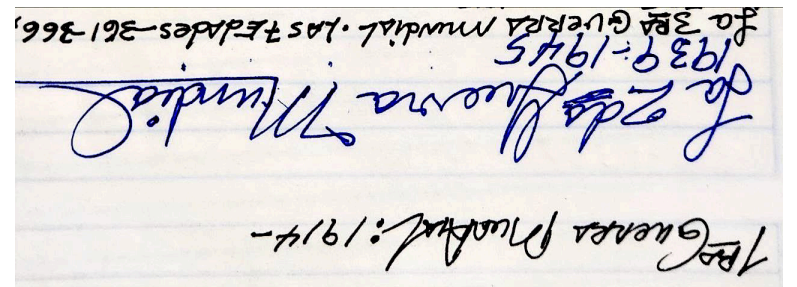 1RA Guerra Mundial: 1914-
La 2da Guerra Mundial
1939-1945
La 3RA Guerra Mundial. Las 7 Edades-361-366,